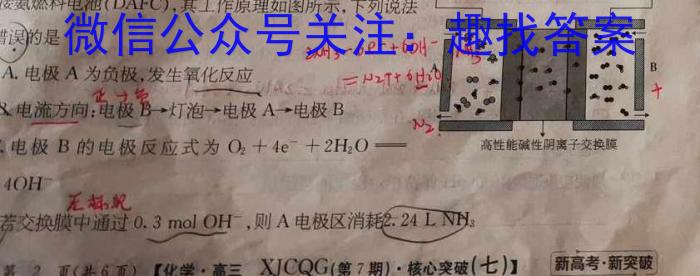 接氨燃料电池(DAFC),其工作原理如图所示,下列说法
错误的是
微信公众号关注:趣找答案
A.电极 A 为负极,发生氧化反应
B.电流方向:电极 B→灯泡→电极 A→电极 B
正→负
.电极 B 的电极反应式为 O₂+4e⁻+2H₂O══
4OH⁻
无标况
若交换膜中通过 0.3 mol OH⁻,则 A 电极区消耗 2.24 L NH₃
=N₂↑+6H₂O
N₂
A
B
+
高性能碱性阴离子交换膜
第 2 页(共 6 页)
【化学·高三 XJCQG(第 7 期)·核心突破(七)】
新高考·新突破